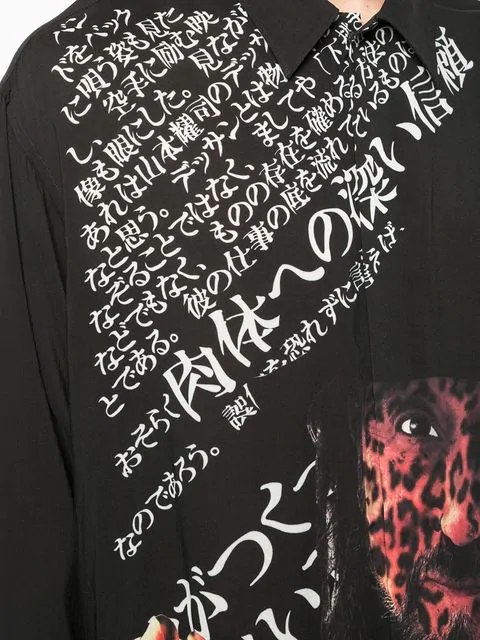 バン
ドをバック
に唄う姿も見た
し、空手に励む映
像も眼にした。見なが
あれは山本耀司のデッサ
なと思う。デッサンとは物
なぞることではなく、ましてや(下
などでもなく、ものの存在を確める方法の
とである。
と
おそらく彼の仕事の底を流れているものは
肉体への深い信頼
なのであろう。
誤
恐れずに言えば、
がつく
い